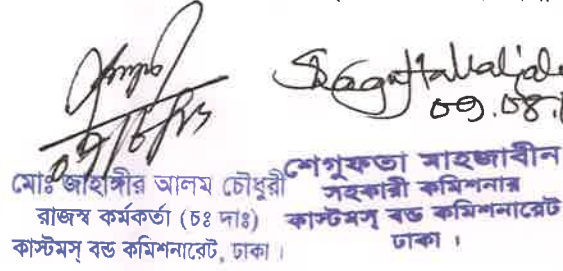 মোঃ জাহাঙ্গীর আলম চৌধুরী
রাজস্ব কর্মকর্তা (চঃ দাঃ)
কাস্টমস্ বন্ড কমিশনারেট, ঢাকা ।
শেগুফতা মাহজাবীন
সহকারী কমিশনার
কাস্টমস্ বন্ড কমিশনারেট
ঢাকা ।